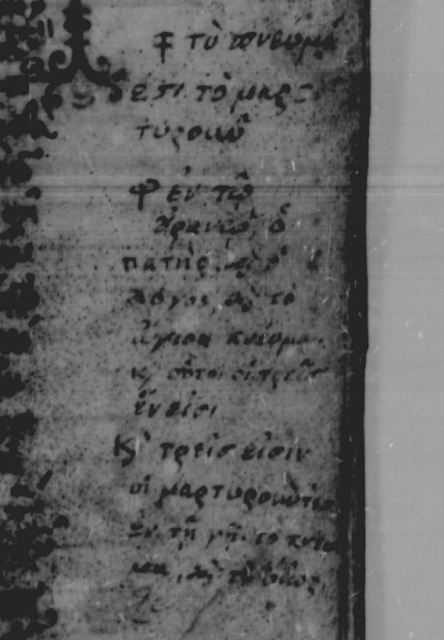 τὸ πνεῦμα
ἐπι τὸ μαρ
τυροῦν
ἐν τῷ
οὐρανῷ ὁ
πατὴρ ὁ
λόγος καὶ τὸ
ἅγιον πνεῦμα
κ οὗτοι οἱ τρεῖς
ἕν εἰσι
κ τρεῖς εἰσιν
οἱ μαρτυροῦντες
ἐν τῇ γῇ το πνευ
μα καὶ τὸ ὕδωρ